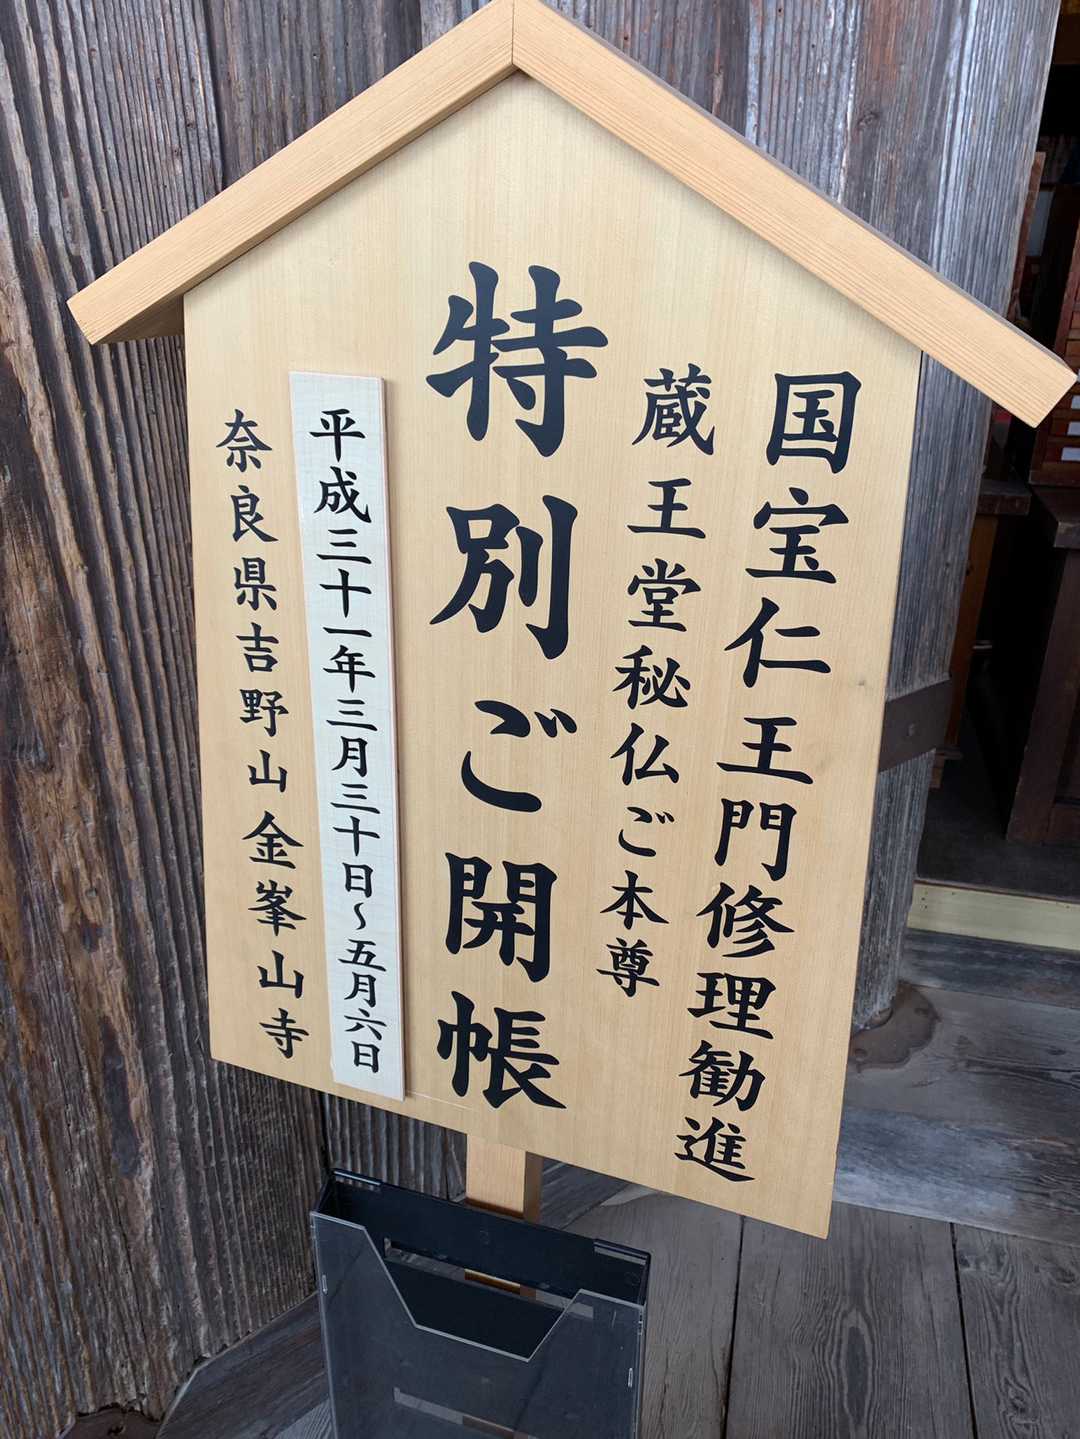 国宝仁王門修理勧進
蔵王堂秘仏ご本尊
特別ご開帳
平成三十一年三月三十日～五月六日
奈良県吉野山金峯山寺